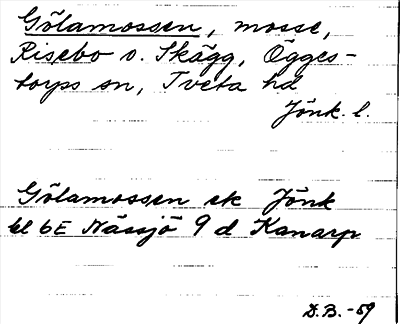 Gölamossen, mosse,
Risebo v. Skägg, Ögges-
torps sn, Tveta hd
Jönk. l.
Gölamossen ek Jönk
bl 6E Nässjö 9 d Kanarp
D.B.-59